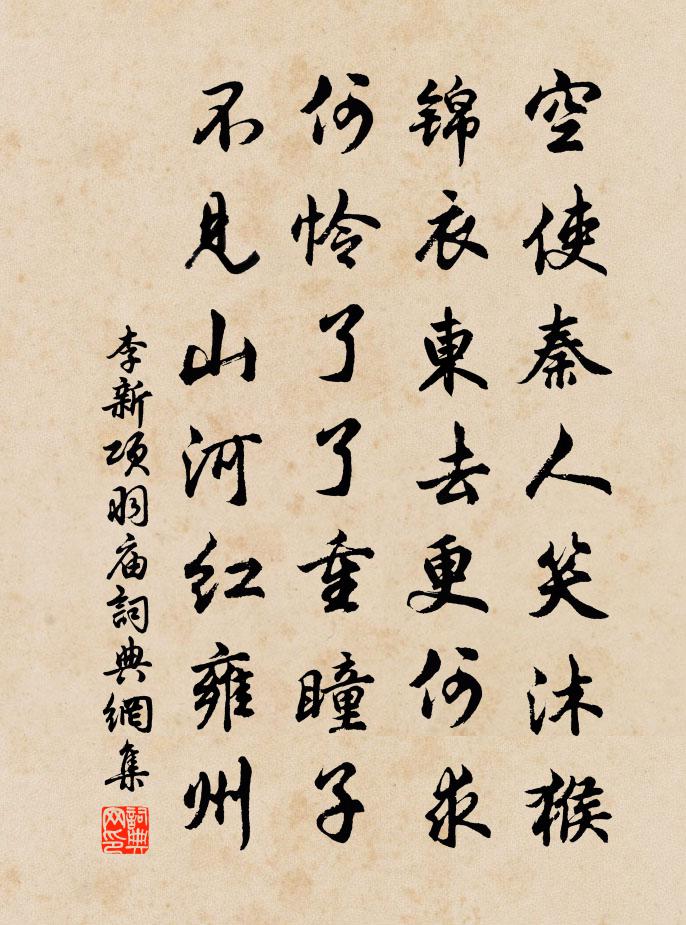 空使秦人笑沐猴
锦衣東去更何求
何怜了了重瞳子
不見山河红雍州
李新項羽庙詞典網集
詞典网印